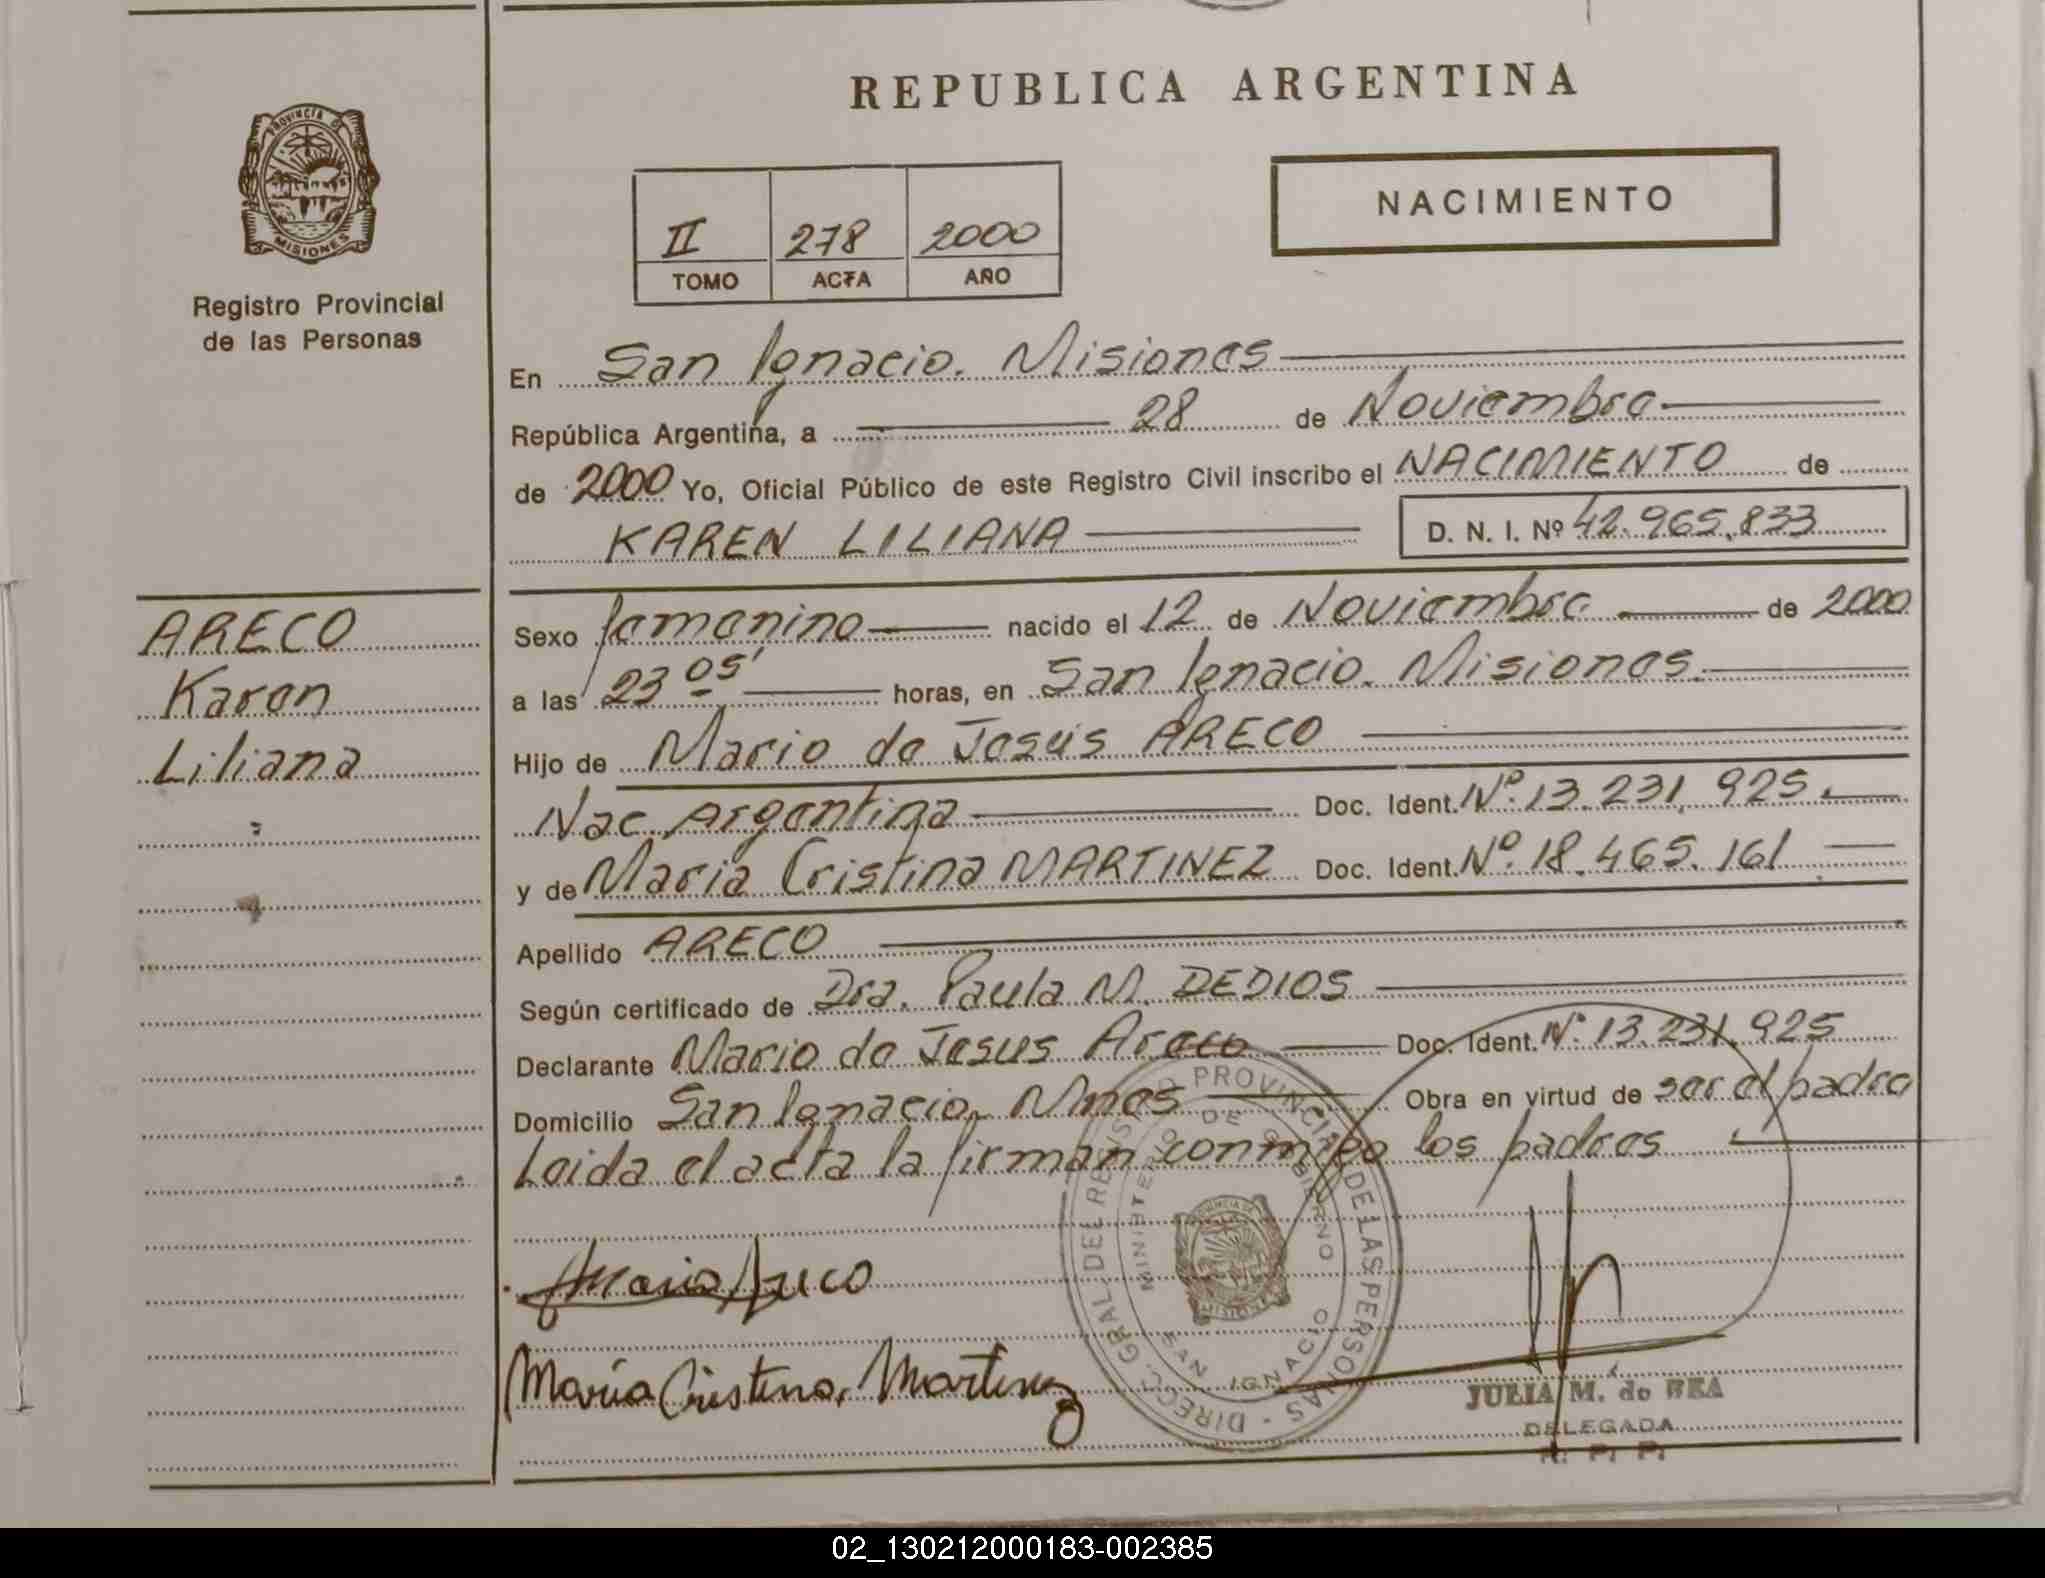 REPUBLICA ARGENTINA
PROVINCIA DE
MISIONES
Registro Provincial
de las Personas
II 278 2000
TOMO ACTA AÑO
NACIMIENTO
En San Ignacio. Misiones
República Argentina, a 28 de Noviembre
de 2000 Yo, Oficial Público de este Registro Civil inscribo el NACIMIENTO de
KAREN LILIANA D. N. I. Nº 42.965.833
ARECO
Karen
Liliana
Sexo femenino nacido el 12 de Noviembre de 2000
a las 23 05' horas, en San Ignacio. Misiones.
Hijo de Mario de Jesús ARECO
Nac. Argentina Doc. Ident. Nº. 13.231.925.
y de Maria Cristina MARTINEZ Doc. Ident. Nº. 18.465.161
Apellido ARECO
Según certificado de Dra. Paula M. DEDIOS
Declarante Mario de Jesus Areco Doc. Ident. Nº. 13.231.925
Domicilio San Ignacio, Mnes Obra en virtud de ser el padre
Leida el acta la firman conmigo los padres
Mario Areco
María Cristina Martinez
DIRECC. GRAL DEL REGISTRO PROVINCIAL DE LAS PERSONAS
MINISTERIO DE GOBIERNO
SAN IGNACIO
MISIONES
JULIA M. de
DELEGADA
R. P. P.
02_130212000183-002385